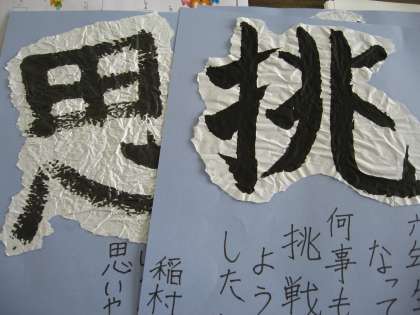 挑
なって
何事も
挑戦
よう
したい
稲村
思
思いや